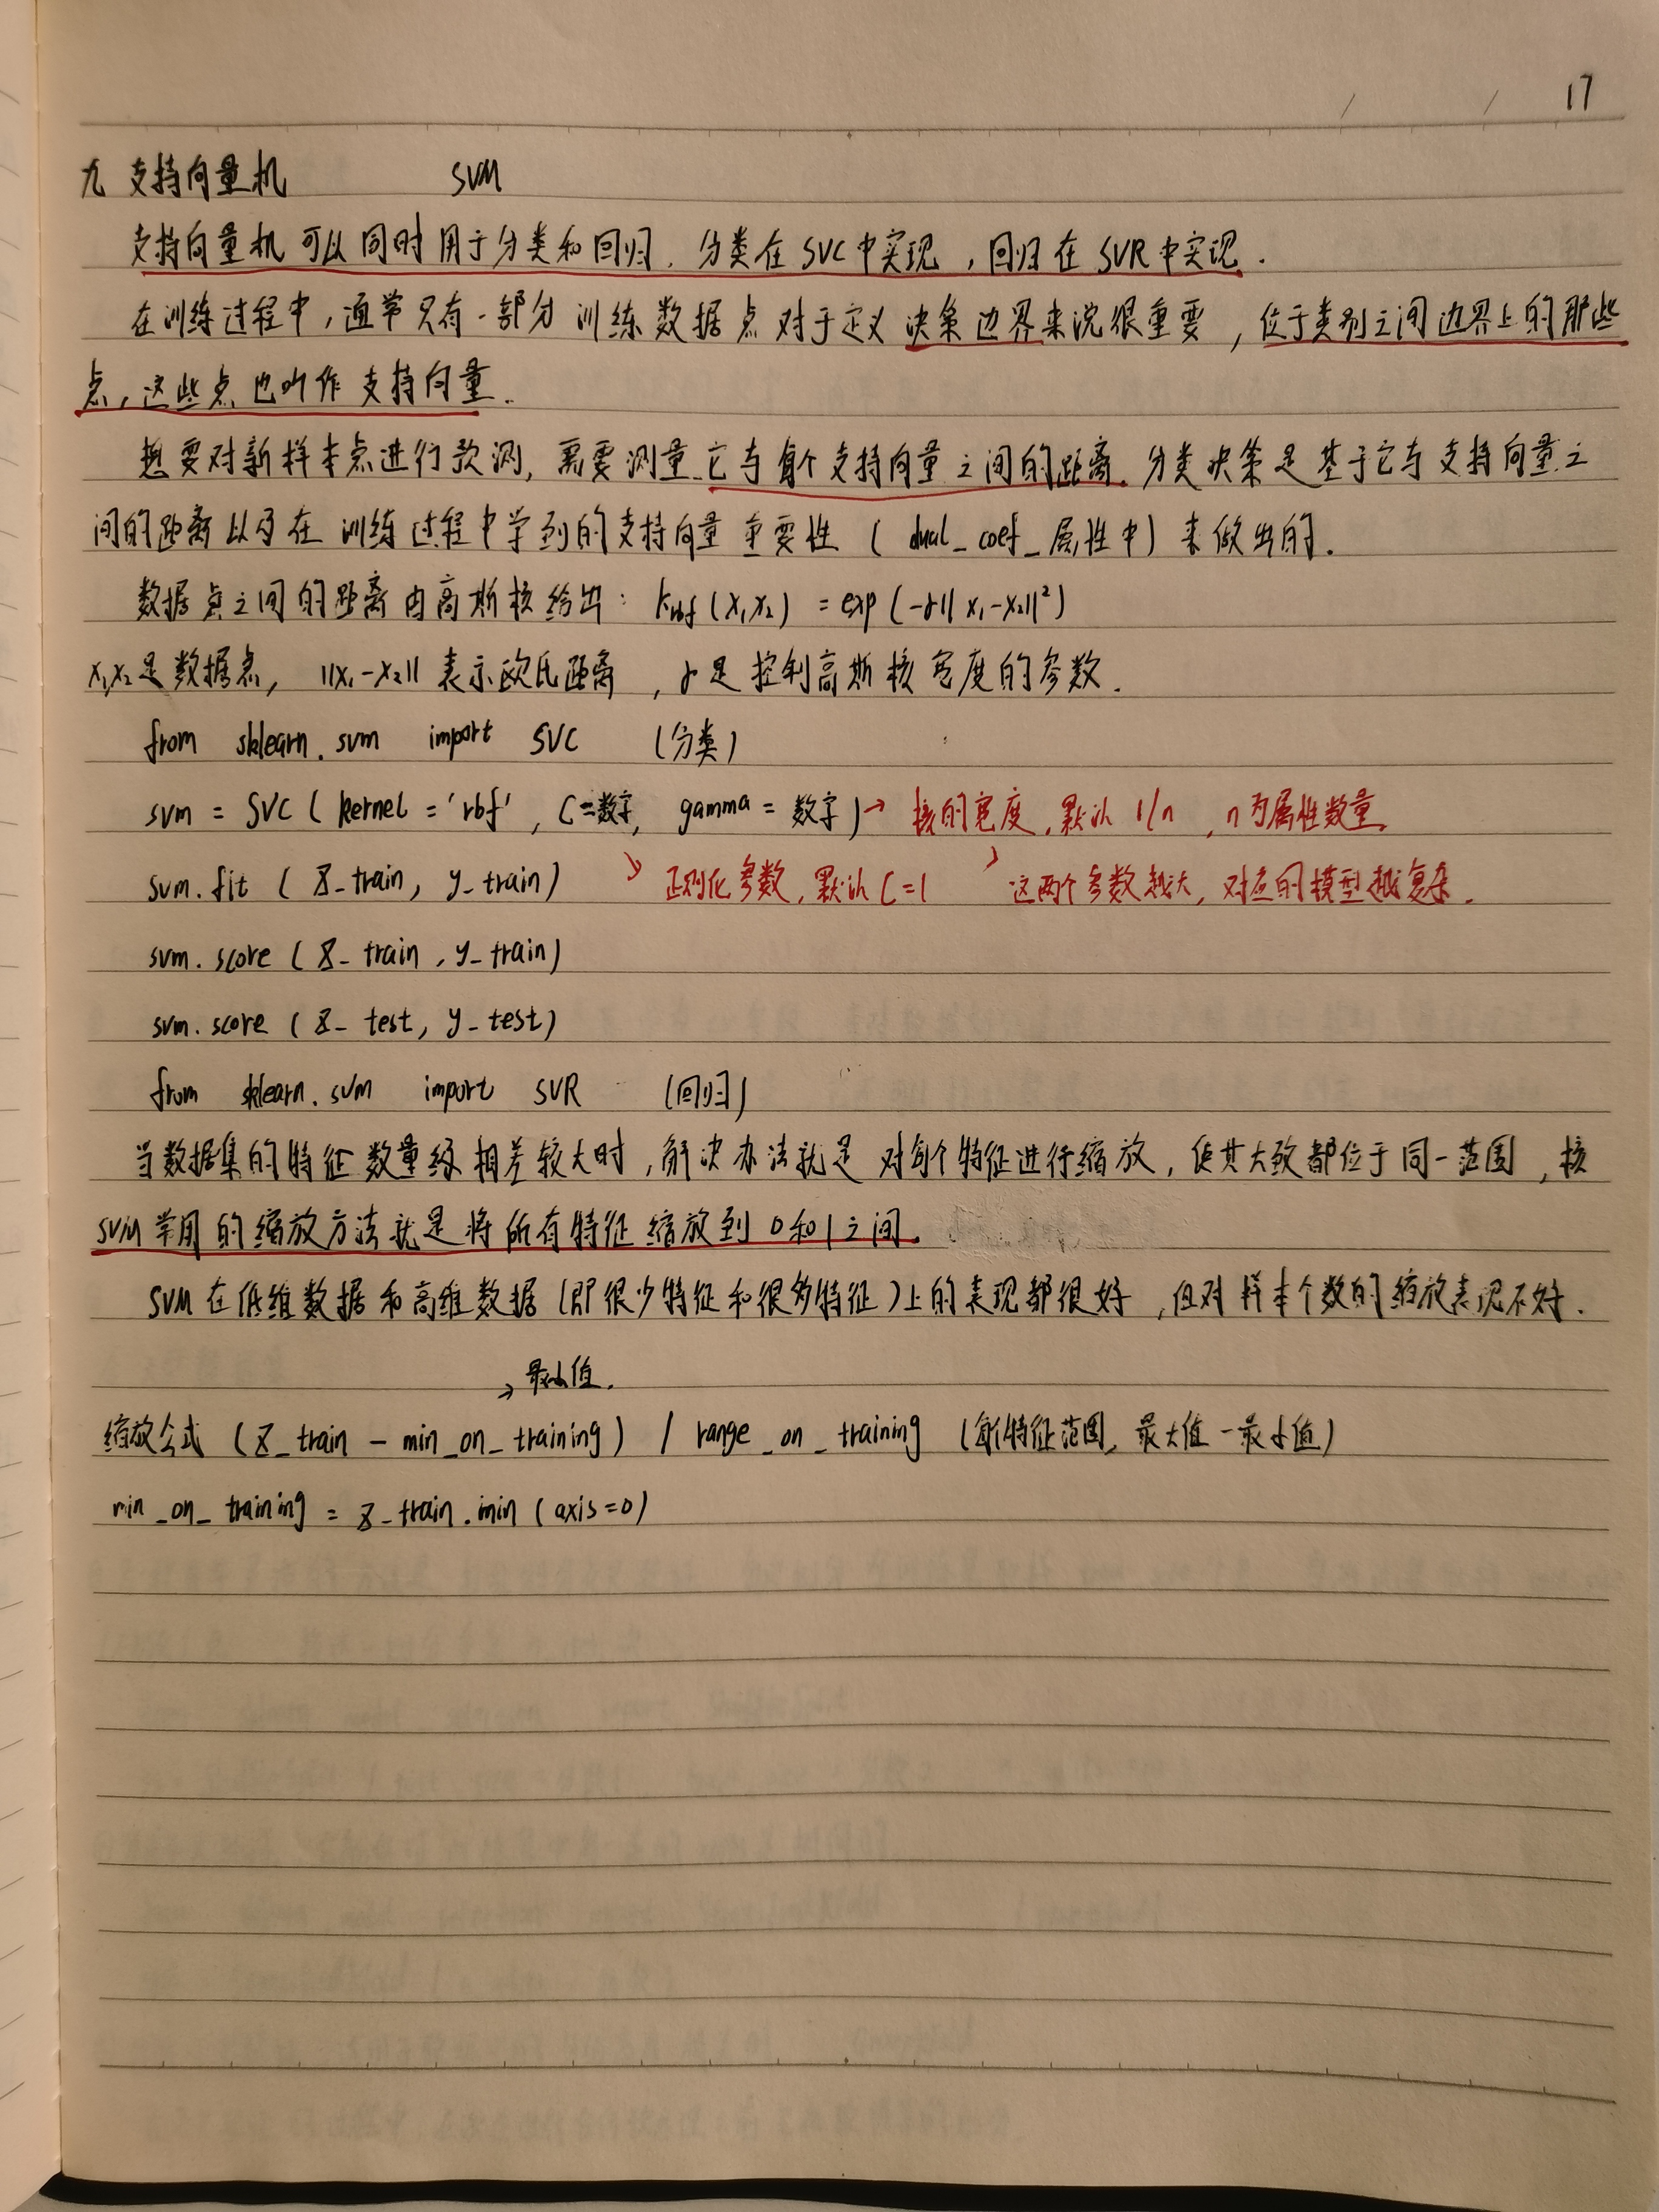 17
九 支持向量机 SVM
支持向量机可以同时用于分类和回归. 分类在SVC中实现,回归在SVR中实现.
在训练过程中,通常只有一部分训练数据点对于定义决策边界来说很重要,位于类别之间边界上的那些
点,这些点也叫作支持向量.
想要对新样本点进行预测,需要测量它与每个支持向量之间的距离.分类决策是基于它与支持向量之
间的距离以及在训练过程中学到的支持向量重要性(dual_coef_属性中)来做出的.
数据点之间的距离由高斯核给出: krbf(x₁x₂) = exp(-γ||x₁-x₂||²)
x₁x₂是数据点, ||x₁-x₂|| 表示欧氏距离,γ是控制高斯核宽度的参数.
from sklearn.svm import SVC (分类)
svm = SVC(kernel='rbf', C=数字, gamma=数字)→ 核的宽度,默认1/n,n为属性数量.
svm.fit(X_train, y_train) 正则化参数,默认C=1 这两个参数越大,对应的模型越复杂.
svm.score(X_train, y_train)
svm.score(X_test, y_test)
from sklearn.svm import SVR (回归)
当数据集的特征数量级相差较大时,解决办法就是对每个特征进行缩放,使其大致都位于同一范围,核
SVM常用的缩放方法就是将所有特征缩放到0和1之间.
SVM在低维数据和高维数据(即很少特征和很多特征)上的表现都很好,但对样本个数的缩放表现不好.
→最小值.
缩放公式 (X_train - min_on_training) / range_on_training (每个特征范围,最大值-最小值)
min_on_training = X_train.min(axis=0)